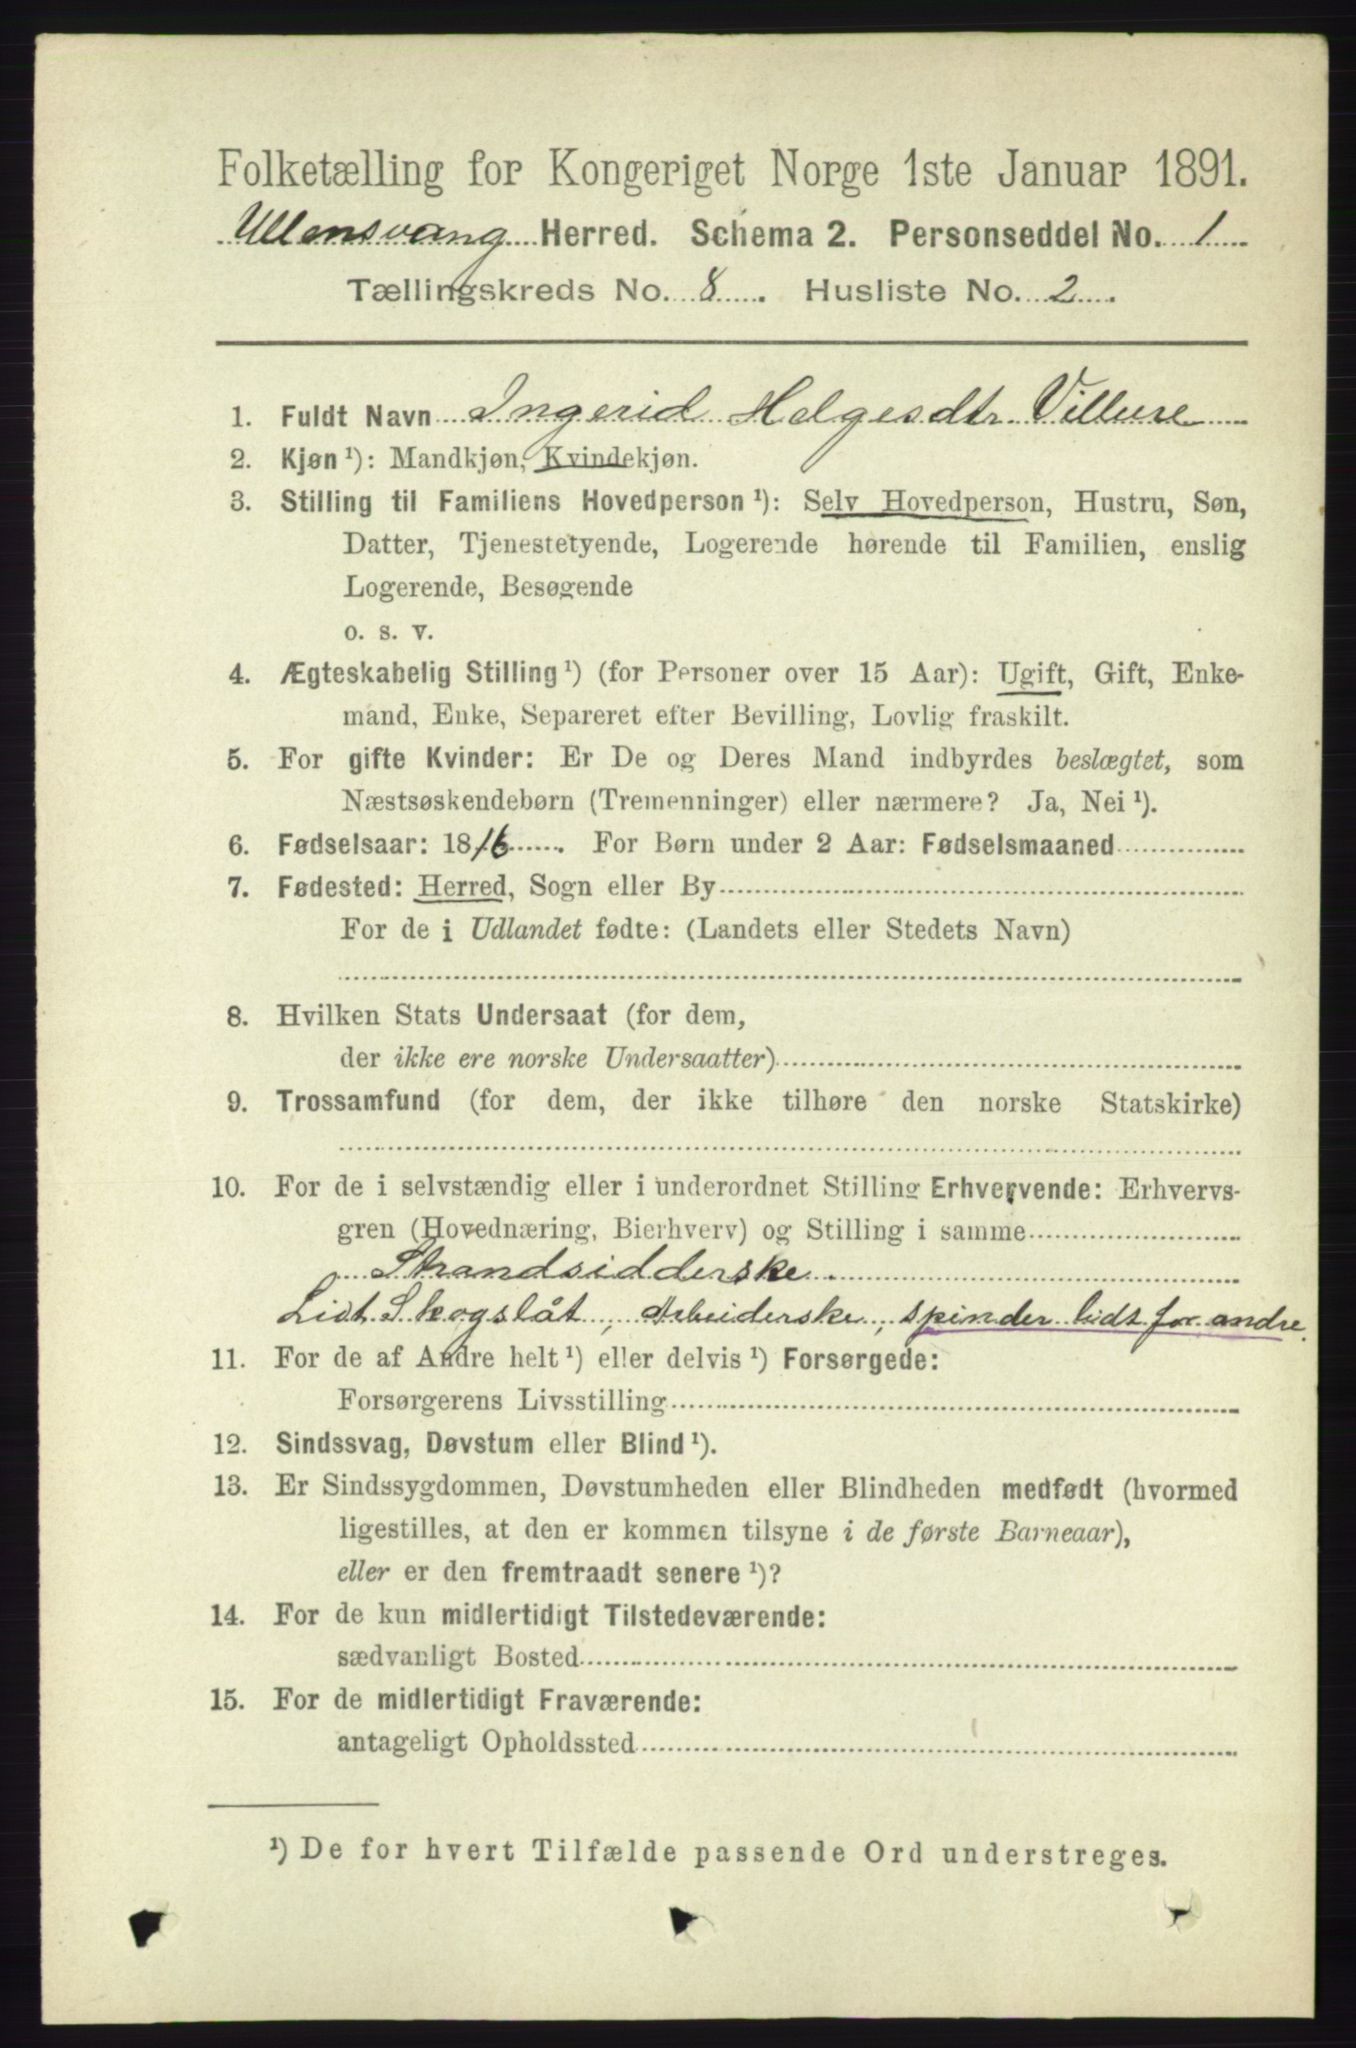 Folketælling for Kongeriget Norge 1ste Januar 1891.
Ullensvang Herred. Schema 2. Personseddel No. 1
Tællingskreds No. 8. Husliste No. 2.
1. Fuldt Navn Ingerid Helgesdtr. Villure
2. Kjøn ¹): Mandkjøn, Kvindekjøn.
3. Stilling til Familiens Hovedperson ¹): Selv Hovedperson, Hustru, Søn,
Datter, Tjenestetyende, Logerende hørende til Familien, enslig
Logerende, Besøgende
o. s. v.
4. Ægteskabelig Stilling ¹) (for Personer over 15 Aar): Ugift, Gift, Enke-
mand, Enke, Separeret efter Bevilling, Lovlig fraskilt.
5. For gifte Kvinder: Er De og Deres Mand indbyrdes beslægtet, som
Næstsøskendebørn (Tremenninger) eller nærmere? Ja, Nei ¹).
6. Fødselsaar: 1816. For Børn under 2 Aar: Fødselsmaaned
7. Fødested: Herred, Sogn eller By
For de i Udlandet fødte: (Landets eller Stedets Navn)
8. Hvilken Stats Undersaat (for dem,
der ikke ere norske Undersaatter)
9. Trossamfund (for dem, der ikke tilhøre den norske Statskirke)
10. For de i selvstændig eller i underordnet Stilling Erhvervende: Erhvervs-
gren (Hovednæring, Bierhverv) og Stilling i samme
Strandsidderske
Lidt Skogslåt, Arbeiderske, spinder lidt for andre.
11. For de af Andre helt ¹) eller delvis ¹) Forsørgede:
Forsørgerens Livsstilling
12. Sindssvag, Døvstum eller Blind ¹).
13. Er Sindssygdommen, Døvstumheden eller Blindheden medfødt (hvormed
ligestilles, at den er kommen tilsyne i de første Barneaar),
eller er den fremtraadt senere ¹)?
14. For de kun midlertidigt Tilstedeværende:
sædvanligt Bosted
15. For de midlertidigt Fraværende:
antageligt Opholdssted
¹) De for hvert Tilfælde passende Ord understreges.